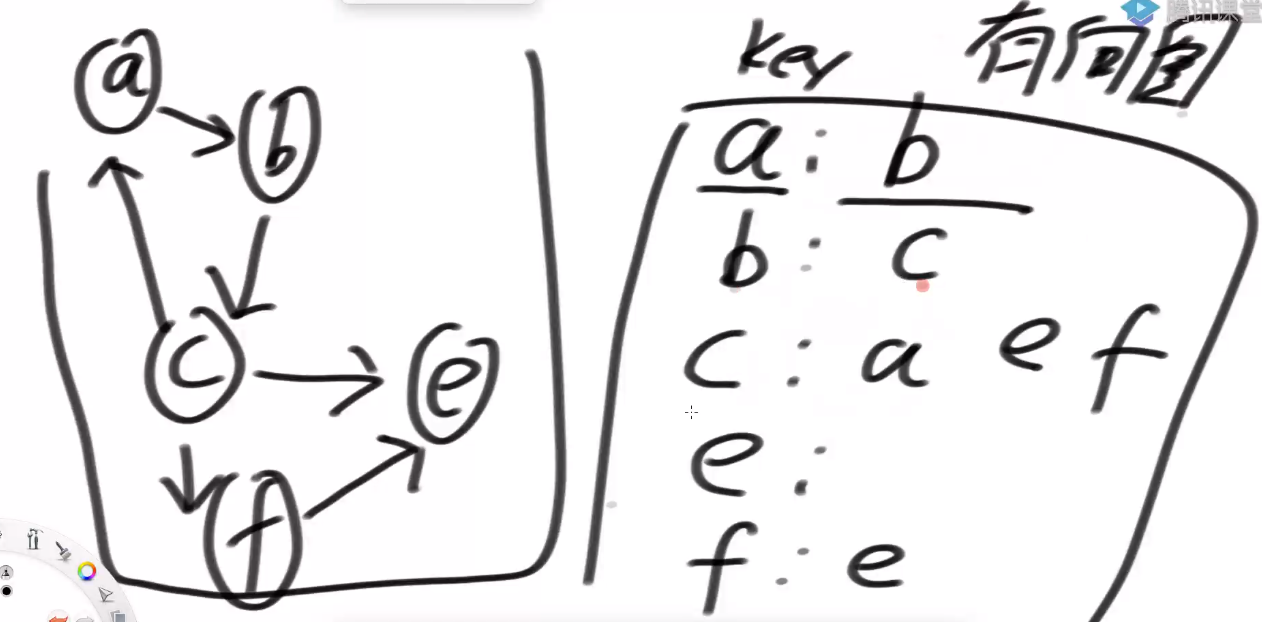 腾讯课堂
key 有向图
a
b
c
e
f
a : b
b : c
c : a e f
e :
f : e